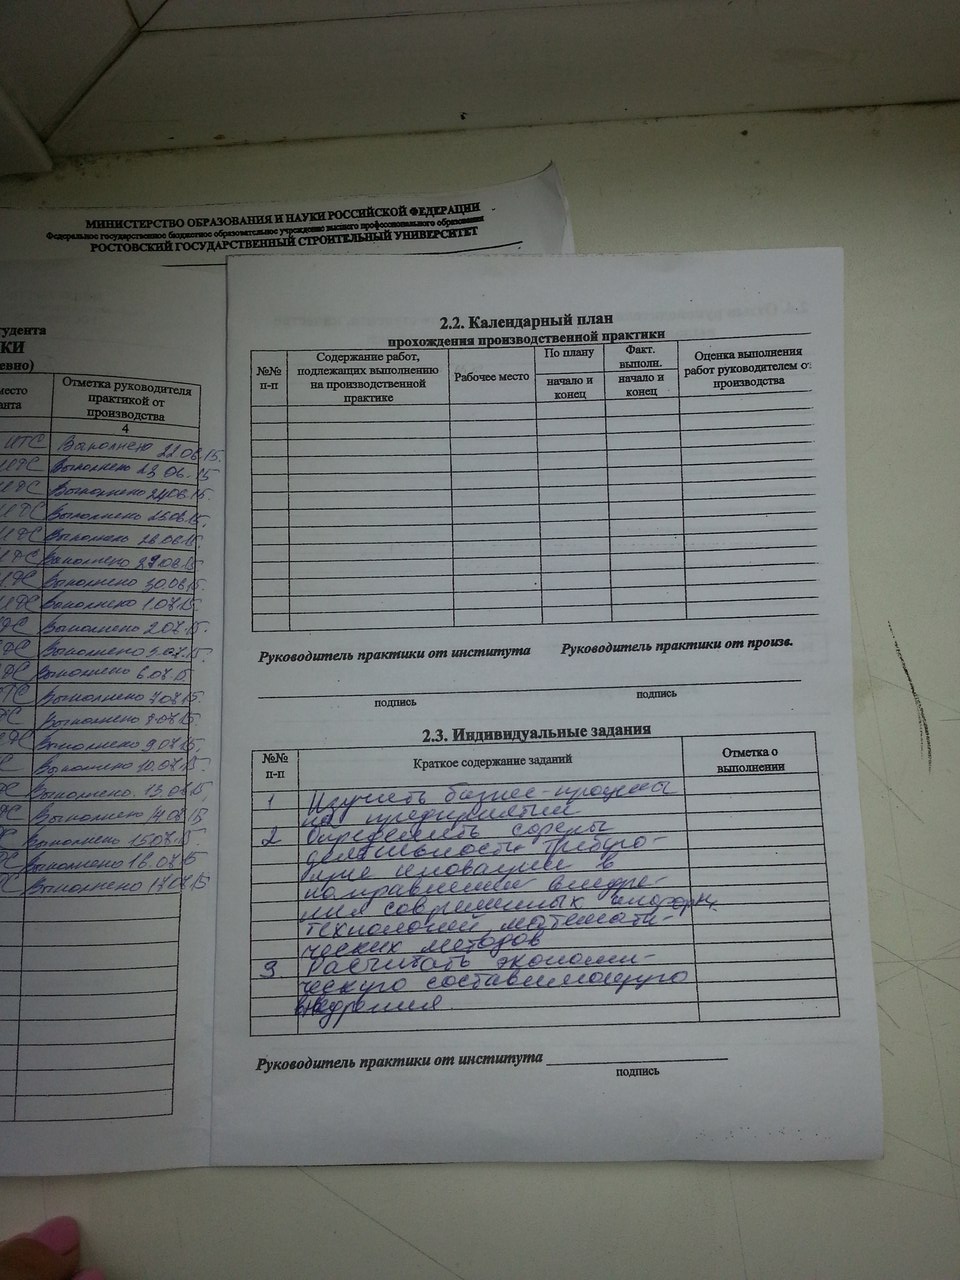 МИНИСТЕРСТВО ОБРАЗОВАНИЯ И НАУКИ РОССИЙСКОЙ ФЕДЕРАЦИИ
Федеральное государственное бюджетное образовательное учреждение высшего профессионального образования
РОСТОВСКИЙ ГОСУДАРСТВЕННЫЙ СТРОИТЕЛЬНЫЙ УНИВЕРСИТЕТ
Отметка руководителя
практикой от
производства
4
Выполнено 22.06.15.
Выполнено 23.06.15
Выполнено 24.06.15.
Выполнено 25.06.15.
Выполнено 26.06.15.
Выполнено 29.06.15
Выполнено 30.06.15.
Выполнено 1.07.15.
Выполнено 2.07.15.
Выполнено 3.07.15.
Выполнено 6.07.15
Выполнено 7.07.15.
Выполнено 8.07.15.
Выполнено 9.07.15.
Выполнено 10.07.15.
Выполнено. 13.07.15.
Выполнено 14.07.15
Выполнено 15.07.15.
Выполнено 16.07.15
Выполнено 17.07.15
2.2. Календарный план
прохождения производственной практики
№№
п-п
Содержание работ,
подлежащих выполнению
на производственной
практике
Рабочее место
По плану
начало и
конец
Факт.
выполн.
начало и
конец
Оценка выполнения
работ руководителем от
производства
Руководитель практики от института Руководитель практики от произв.
подпись подпись
2.3. Индивидуальные задания
№№
п-п
Краткое содержание заданий
Отметка о
выполнении
1 Изучить бизнес-процессы
на предприятии
2 Определить сферы
деятельности, требую-
щие инновации в
направлении внедре-
ния современных информ.
технологий, математи-
ческих методов
3. Расчитать экономи-
ческую составляющую
внедрения
Руководитель практики от института
подпись